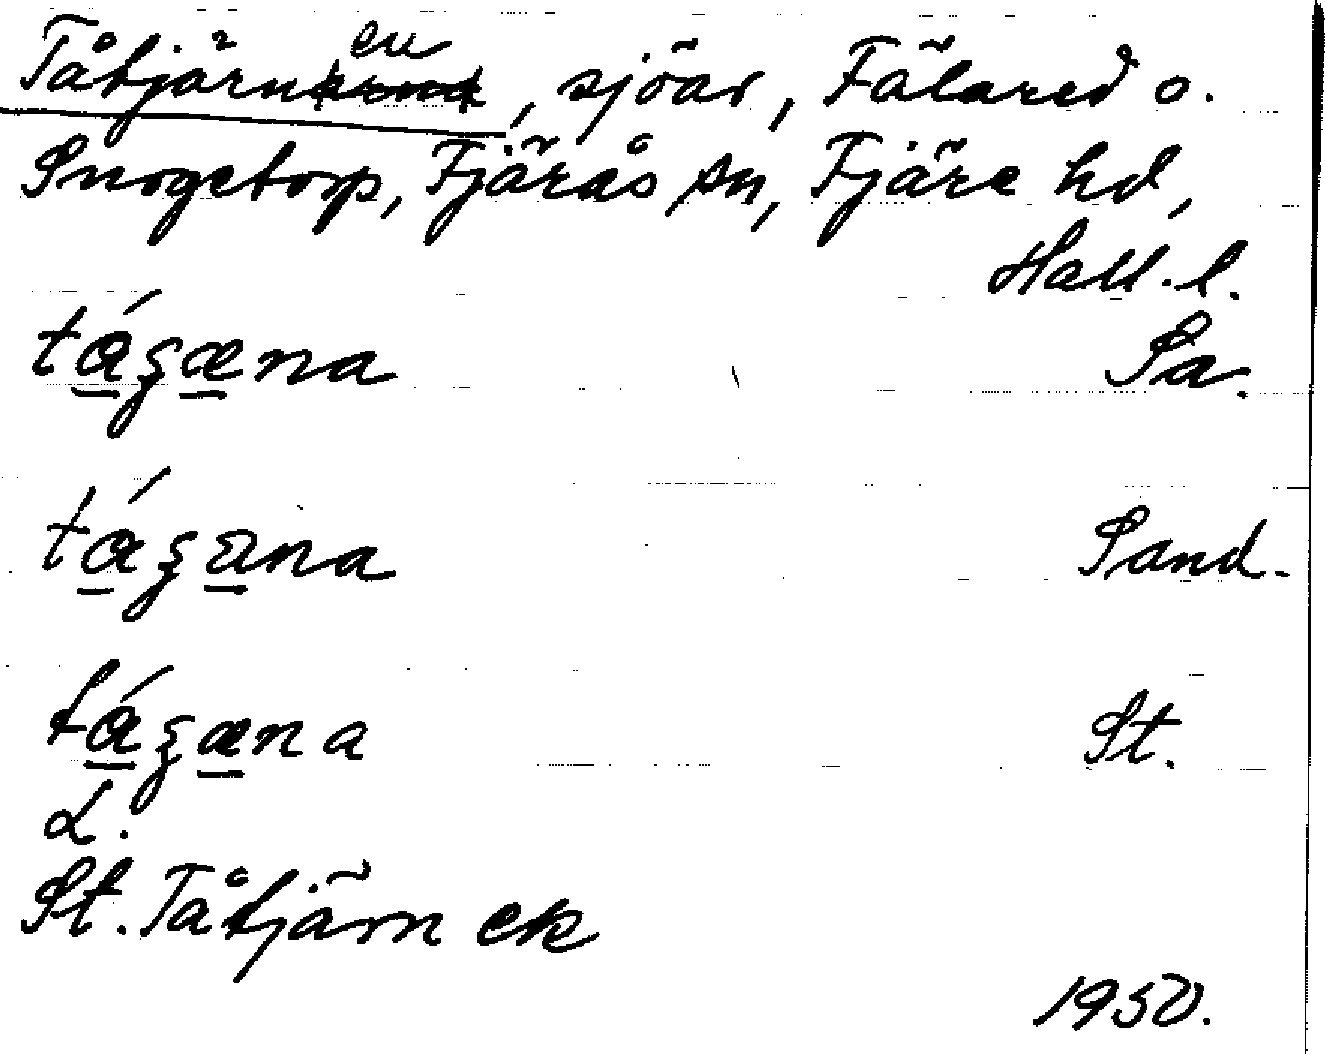 Tåtjärnen, sjöar, Fälared o.
Snogetorp, Fjärås sn, Fjäre hd,
Hall. l.
tá̱ʒæ̱na Sa.
tá̱ʒa̱na Sand.
tá̱ʒæ̱na St.
L.
St. Tåtjärn ek
1950.